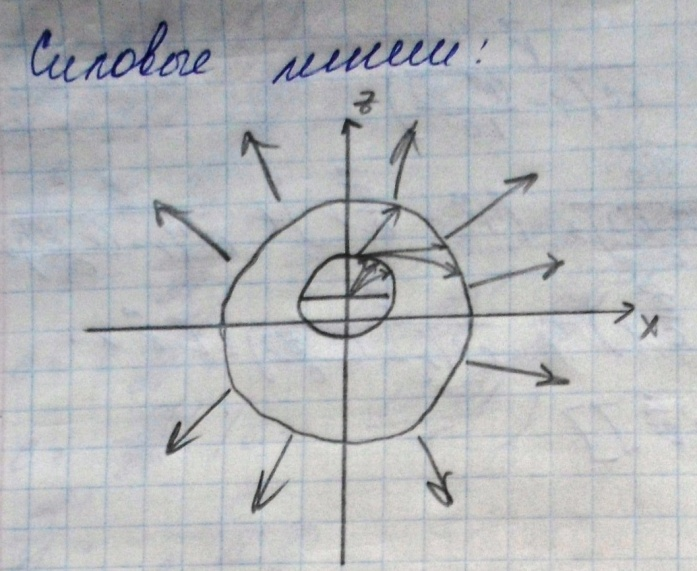 Силовые линии:
z
x